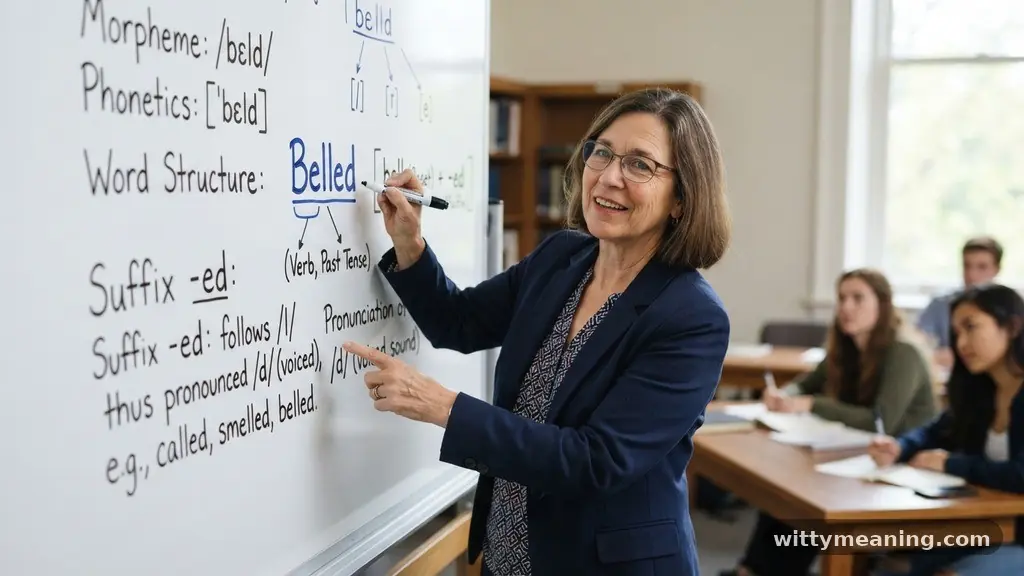 Morpheme: /bɛld/
Phonetics: [ˈbɛld]
belld
[/]
[r]
[e]
Word Structure: Belled
+ -ed
(Verb, Past Tense)
Suffix -ed:
Suffix -ed: follows /l/
thus pronounced /d/ (voiced),
e.g., called, smelled, belled.
Pronunciation
/d/ sound)
wittymeaning.com